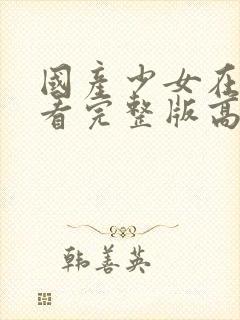 國產少女在
看完整版高
韩善英